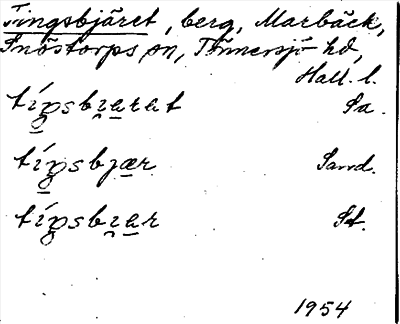 Tingsbjäret, berg, Marbäck,
Snöstorps sn, Tönnersjö hd,
Hall. l.
tíŋsbɪ̯ar̯at Sa.
tíŋsbjær Sand.
tíŋsbɪ̯ar St.
1954